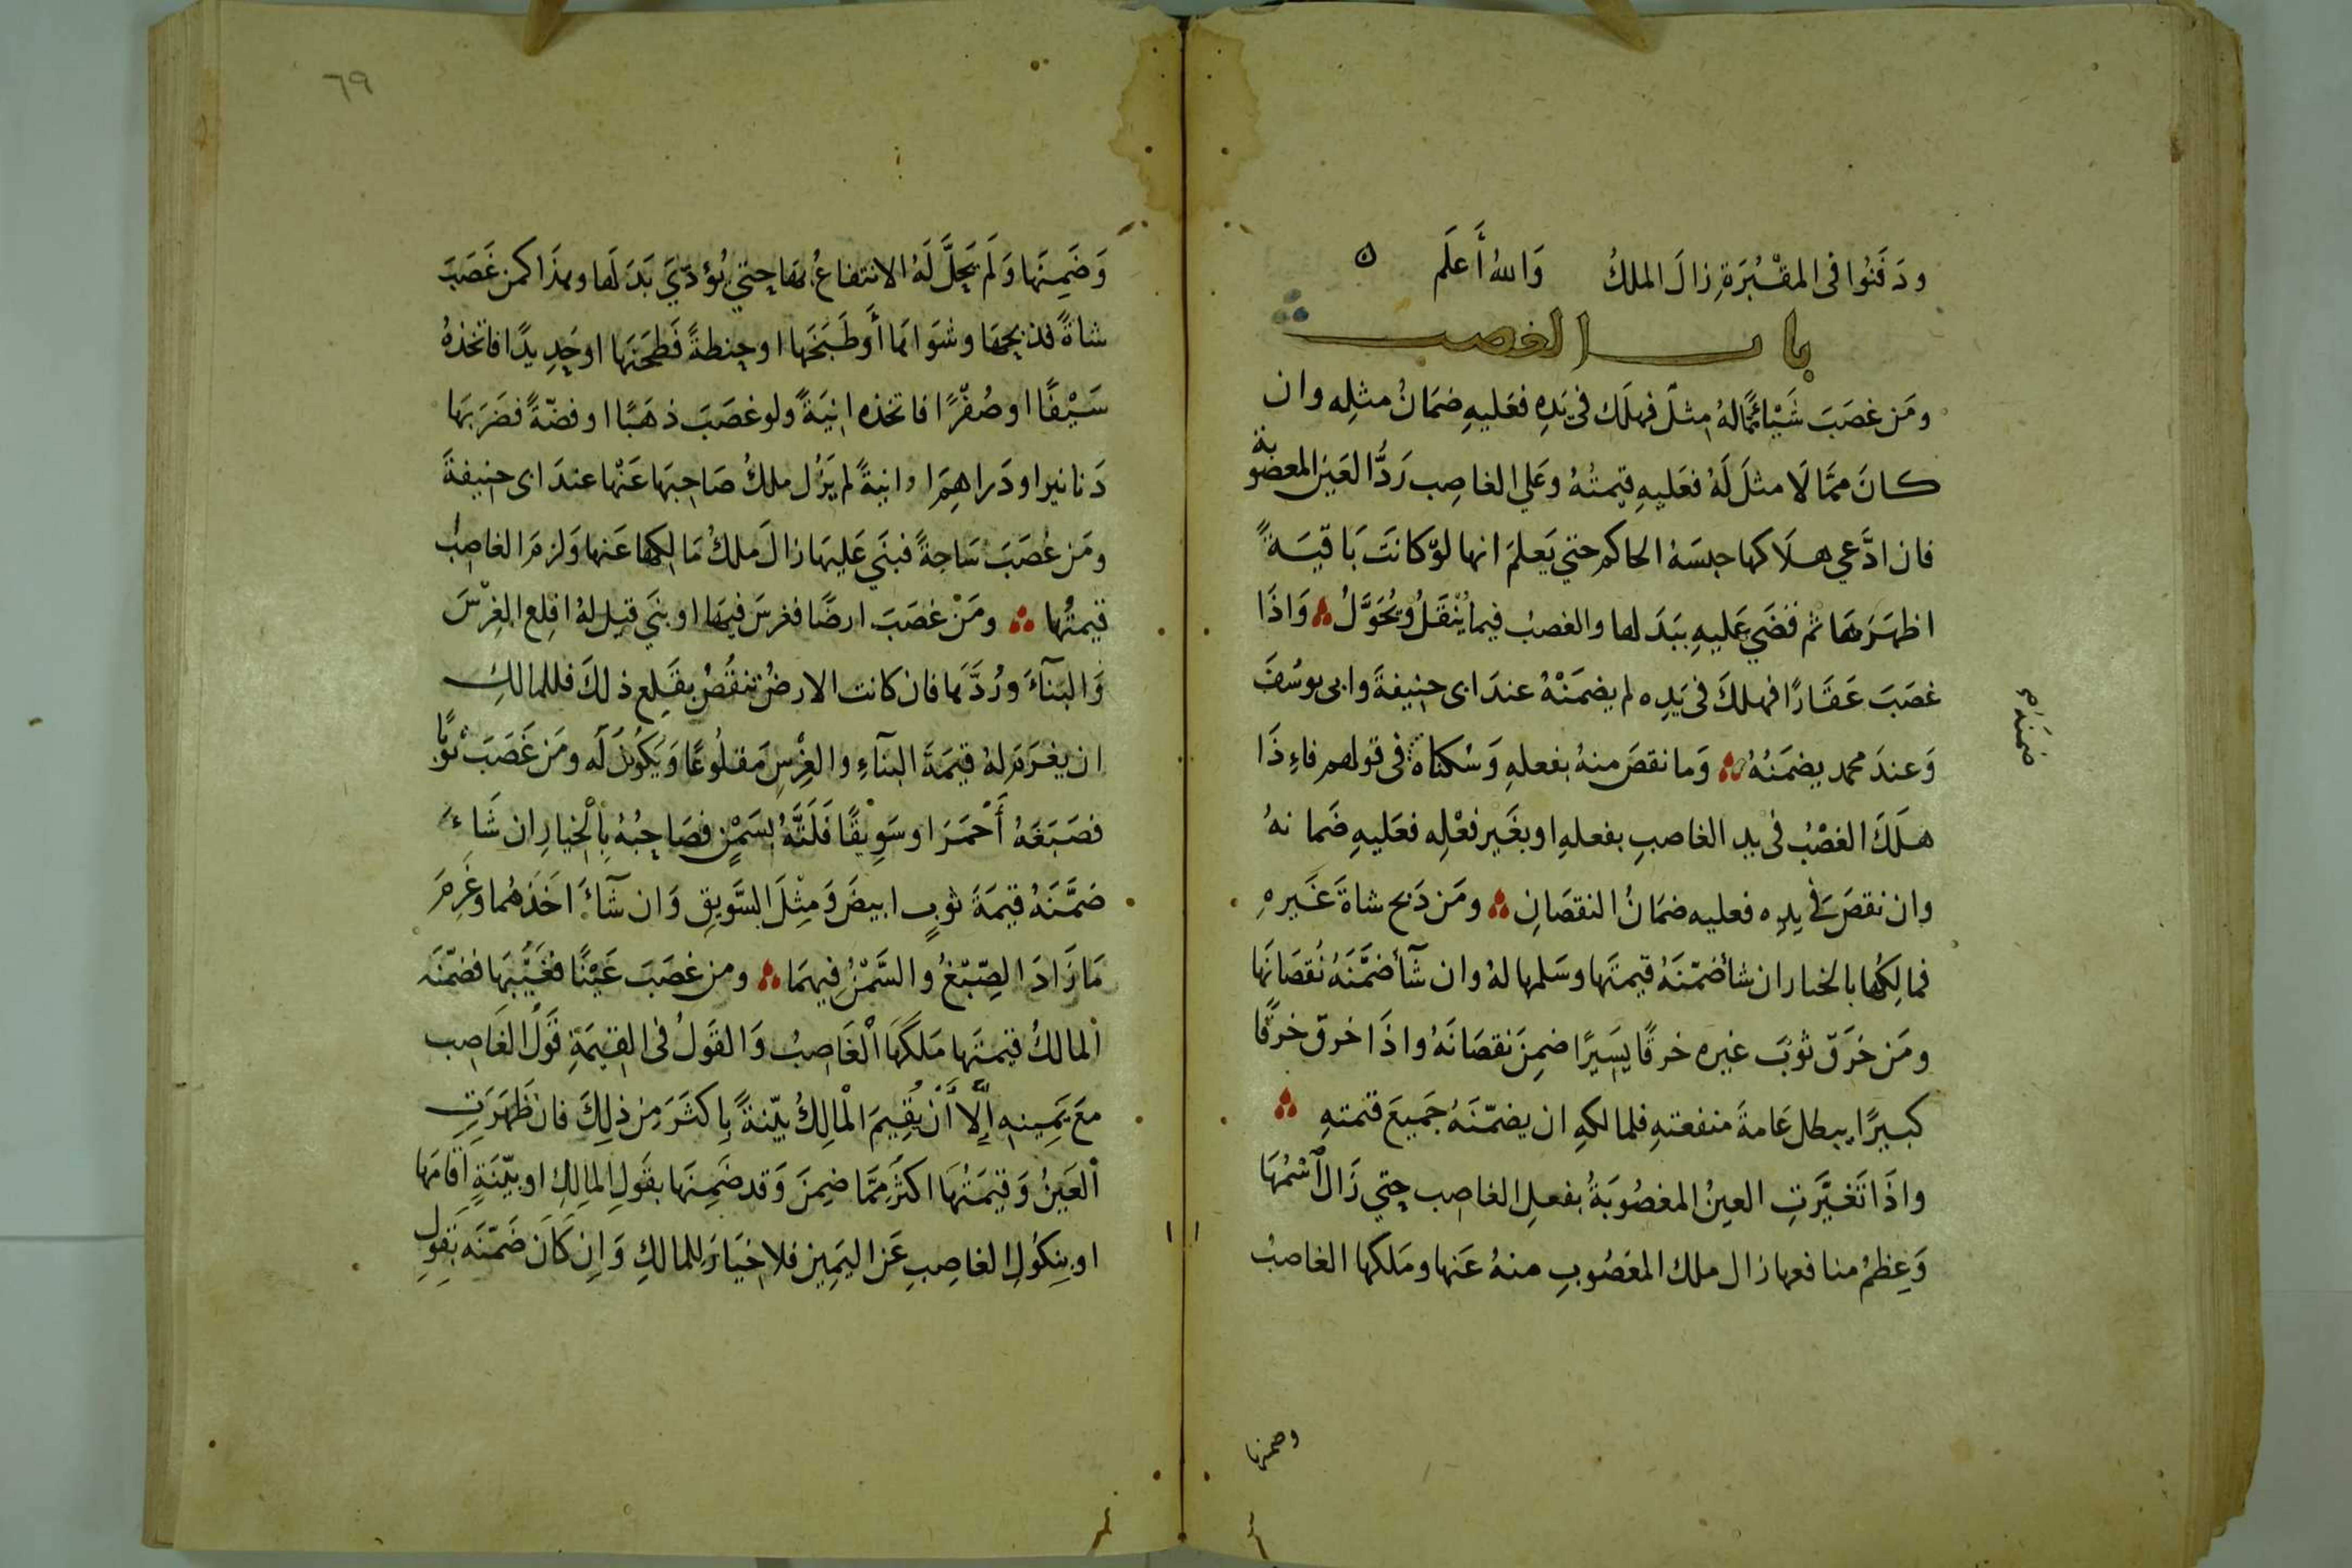 ودَفَنُوا فى المقْبُرَةِ زالَ الملكُ وَاللهُ أَعلَم ه
باب الغصب
ومَن غصَبَ شَيْاءً مّما لهُ مِثلٌ فهلَك فى يَدِهِ فعَليهِ ضمَانُ مثلِه وان
كانَ ممَّا لَا مثلَ لَهُ فعَليهِ قيمتُهُ وعَلي الغاصِب رَدُّ العَينِ المغصُوبة
فان ادَّعي هلَاكها حبسَهُ الحاكم حتي يَعلمَ انها لوْ كانَتَ بَاقيَةً
اظهَرَهَا ثم قضَي عَليهِ ببَدَلها والغصبُ فيما يُنْقَلُ ويُحَوَّلُ وَاذَا
غصَبَ عَقَارًا فهلكَ فى يَدِه لم يضمَنْهُ عندَ ابى حنيفةَ وابى يوسُفَ
وَعندَ محمد يضمَنُهُ وَما نقصَ منهُ بفعلهِ وَسُكناهُ فى قولهم فاءِذَا
ضمنه
هلَكَ الغصْبُ فى يدِ الغاصبِ بفعلهِ او بغَيرِ فعْلِه فعَليهِ ضَمانهُ
وان نقصَ في يدِه فعليه ضمَانُ النقصَانِ ومَن ذبح شاةَ غَيرهِ
فمالِكُها بالخيار ان شأ ضمّنَهُ قيمتَها وسَلمها لهُ وان شآ ضمَّنَهُ نُقصَانَها
ومَن خرَق ثوبَ غيره خرقًا يسَيرًا ضمِنَ نقصَانَهُ واذَا خرق خرقًا
كبيرًا يبطل عَامةَ منفعتهِ فلمالكهِ ان يضمّنَهُ جَميعَ قيمتهِ
واذَا تَغيَّرَتِ العينُ المغصُوبَةُ بفعلِ الغاصب حتي زَال اسْمُهَا
وَعِظمُ منافعها زال ملك المغصُوبِ منهُ عَنها ومَلكها الغاصبُ
وضمنها
٦٩
وَضَمِنَها وَلَم يَحِلَّ لَهُ الانتفاعُ بهَا حتي يُؤدّيَ بَدَلَها وهذَا كمن غَصَبَ
شاةً فذبحهَا وشوَاهَا أَو طَبَخَها او حِنطةً فَطحَنَها او حَدِيدًا فاتّخذهُ
سَيْفًا او صُفْرًا فاتخذه انيَةً ولو غصَبَ ذهَبًا او فضّةً فضَرَبَها
دَنانيرا ودَراهِمَ او انيةً لم يَزُل ملكُ صَاحِبهَا عَنْها عندَ ابى حنيفةَ
ومَن غصَبَ سَاجةً فبنَي عَليهَا زالَ ملكُ مَالِكها عَنها وَلزمَ الغاصِبُ
قيمتُها ومَنْ غصَبَ ارضًا فغرسَ فيهَا او بنَي قيل لهُ اقلع الغِرْسَ
وَالبنآءَ ورُدَّهَا فان كانت الارضُ تنقُصُ بقَلع ذلكَ فللمالكِ
ان يغرَمَ لهُ قيمَةَ البنآءِ والغِرْسِ مَقلُوعًا وَيَكُونَ لَه ومَن غَصَبَ ثوْبًا
فصَبَغَهُ أَحْمَرَ او سَوِيقًا فَلَتَّهُ بسَمْنٍ فصَاحِبُهُ بِالْخِيارِ ان شَاءَ
ضَمَّنَهُ قيمَةَ ثوبٍ ابيضَ وَمِثْلَ السَّويقِ وَان شآءَ اَخَذهُما وغَرِمَ
مَا زَادَ الصِّبْغُ والسَّمْنُ فيهمَا ومن غصَبَ عَيْنًا فغَيَّبهَا فضمّنَه
المالكُ قيمتَها مَلَكَهَا الْغَاصِبُ وَالقَولُ فى القيمَةِ قَولُ الغَاصِب
معَ يَمِينهِ اِلّا أَنْ يُقِيمَ الْمالِكُ بيّنةً بِاكثَرَ مِن ذلِكَ فان ظَهَرَتِ
الْعَينُ وَقيمَتُهَا اكثَرُ ممَّا ضمِنَ وَقد ضَمِنَها بقَولِ المالِكِ او بيّنَةٍ اَقامَها
او بنكُولِ الغاصِبِ عَن اليَمِين فلا خيَارَ للمالكِ وَاِن كَانَ ضَمّنَه بَقولِ